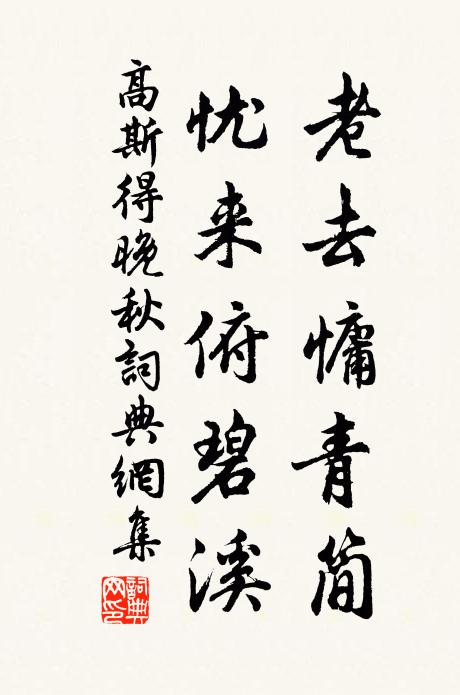 老去慵青简
忧来俯碧溪
高斯得晚秋詞典網集
詞典網印